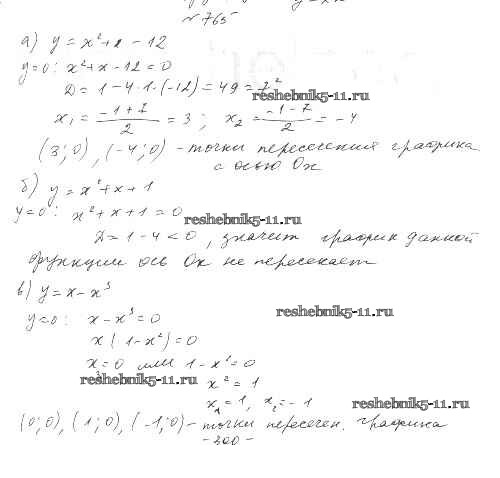 № 765
а) y = x² + x - 12
y=0: x² + x - 12 = 0
Д = 1 - 4·1·(-12) = 49 = 7²
reshebnik5-11.ru
x₁ = (-1+7)/2 = 3; x₂ = (-1-7)/2 = -4
(3;0), (-4;0) - точки пересечения графика
с осью Ox
б) y = x² + x + 1
y=0: x² + x + 1 = 0
reshebnik5-11.ru
Д = 1 - 4 < 0, значит график данной
функции ось Ox не пересекает
в) y = x - x³
reshebnik5-11.ru
y=0: x - x³ = 0
x(1 - x²) = 0
x = 0 или 1 - x² = 0
reshebnik5-11.ru
x² = 1
x₁ = 1, x₂ = -1
reshebnik5-11.ru
(0;0), (1;0), (-1;0) - точки пересечен. графика
- 300 -